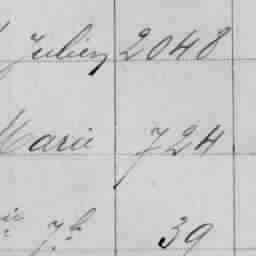 Julien 2048
Marie 724
39